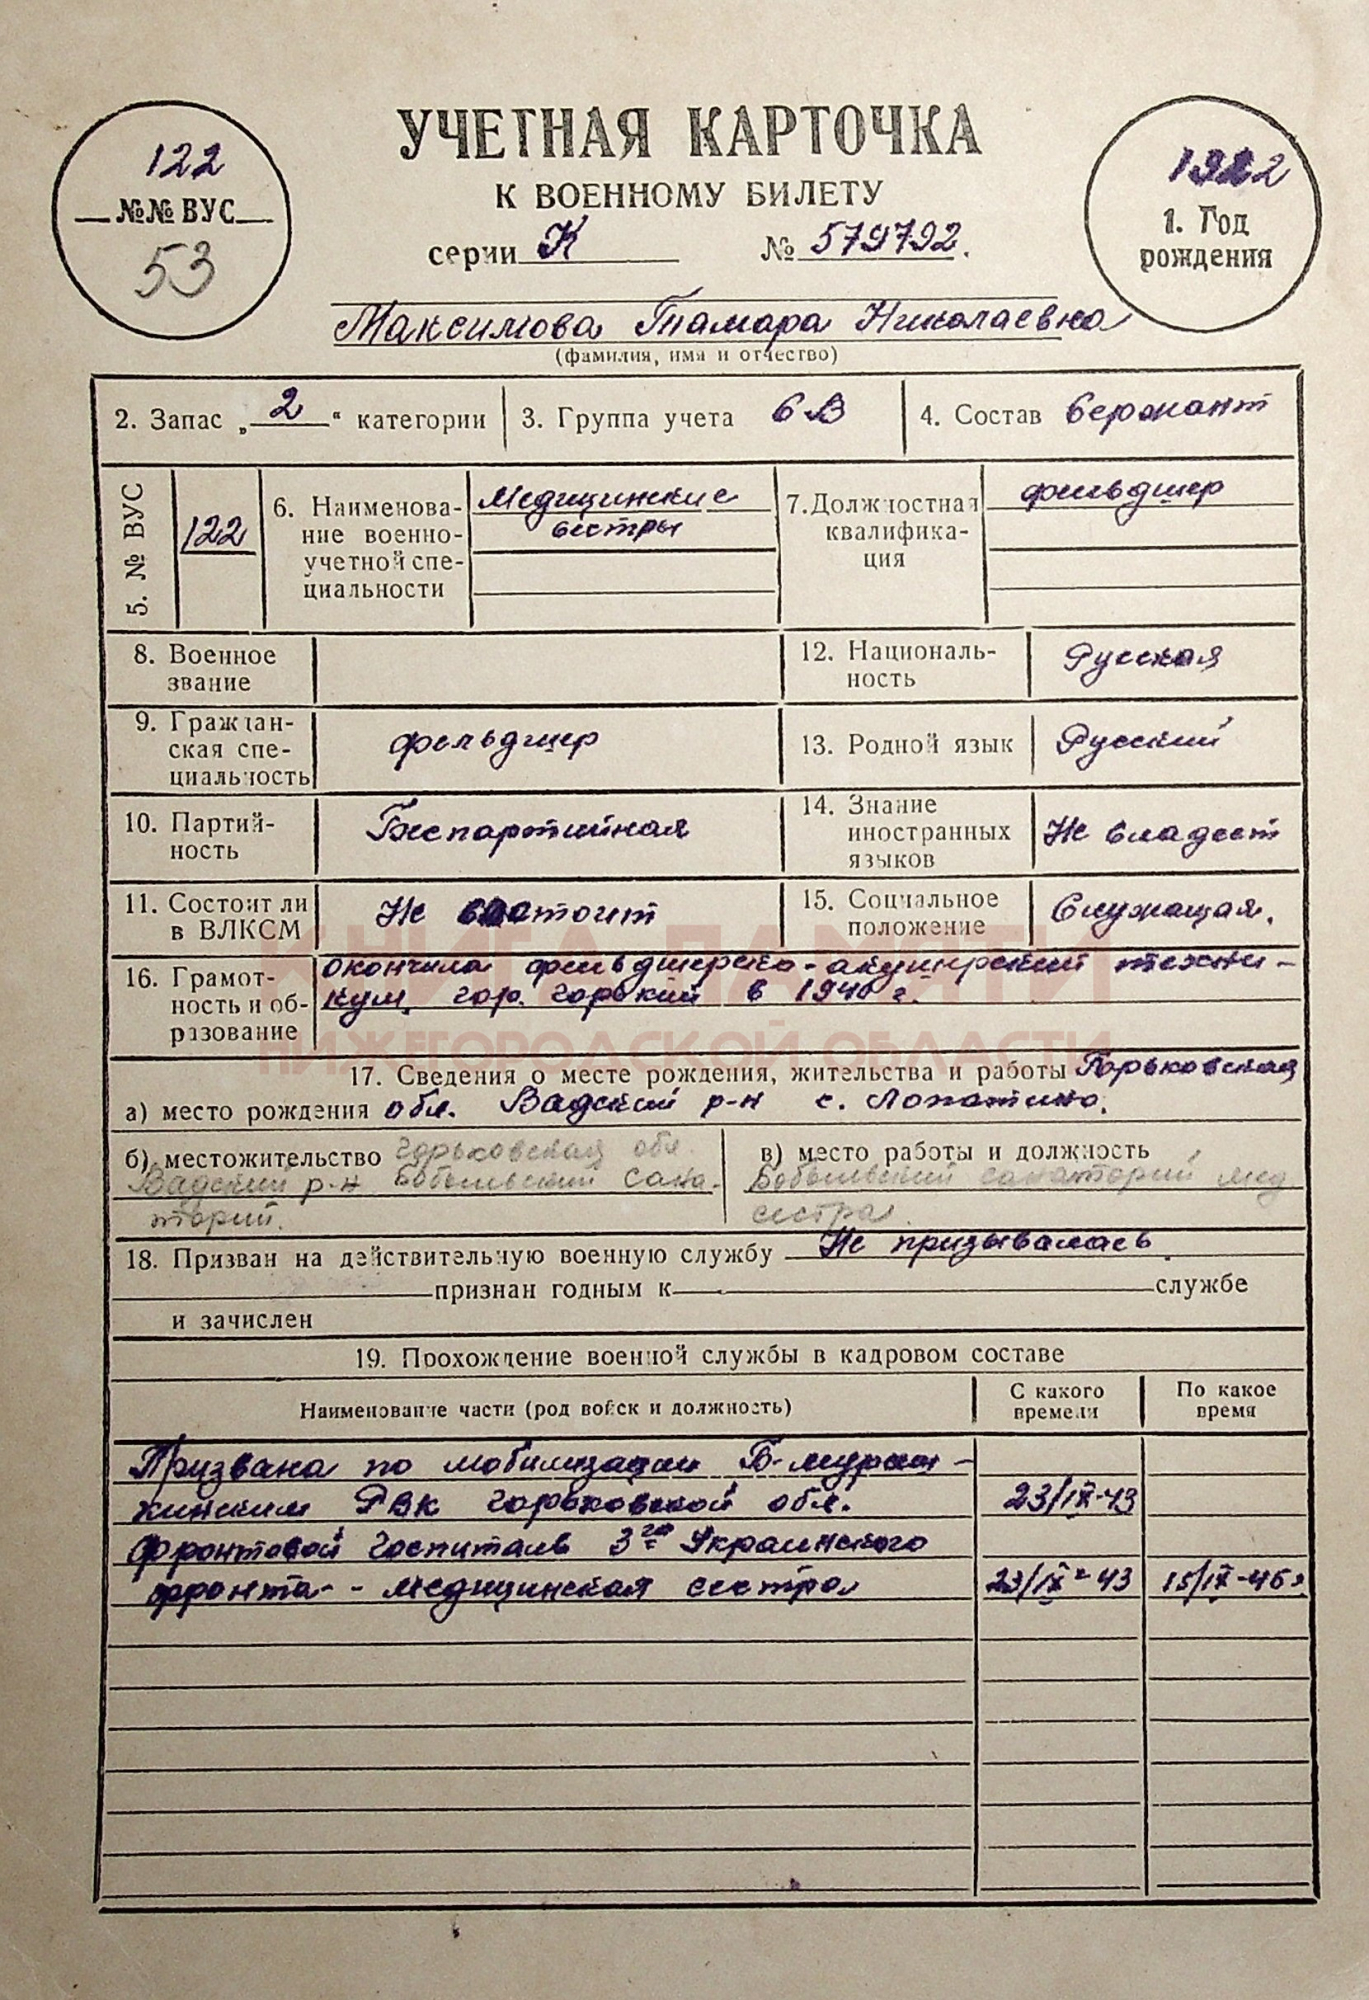 УЧЕТНАЯ КАРТОЧКА
К ВОЕННОМУ БИЛЕТУ
122
№№ ВУС
53
серии К № 579792.
1922
1. Год
рождения
Максимова Тамара Николаевна
(фамилия, имя и отчество)
2. Запас „2“ категории
3. Группа учета 6В
4. Состав Сержант
5. № ВУС
122
6. Наименова-
ние военно-
учетной спе-
циальности
Медицинские
сестры
7. Должностная
квалифика-
ция
фельдшер
8. Военное
звание
12. Националь-
ность
Русская
9. Граждан-
ская спе-
циальность
фельдшер
13. Родной язык
Русский
10. Партий-
ность
Беспартийная
14. Знание
иностранных
языков
Не владеет
11. Состоит ли
в ВЛКСМ
Не состоит
15. Социальное
положение
Служащая.
16. Грамот-
ность и об-
разование
окончила фельдшерско-акушерский техни-
кум, гор. Горький в 1940 г.
КНИГА ПАМЯТИ
НИЖЕГОРОДСКОЙ ОБЛАСТИ
17. Сведения о месте рождения, жительства и работы Горьковская
а) место рождения обл. Вадский р-н с. Лопатино.
б) местожительство Горьковская обл.
Вадский р-н Бобыльский сана-
торий.
в) место работы и должность
Бобыльский санаторий мед
сестра.
18. Призван на действительную военную службу Не призывалась.
признан годным к службе
и зачислен
19. Прохождение военной службы в кадровом составе
Наименование части (род войск и должность)
С какого
времени
По какое
время
Призвана по мобилизации Б-мураш-
кинским РВК Горьковской обл. 23/IX-43
Фронтовой госпиталь 3го Украинского
фронта - медицинская сестра 23/IX-43 15/IX-45г